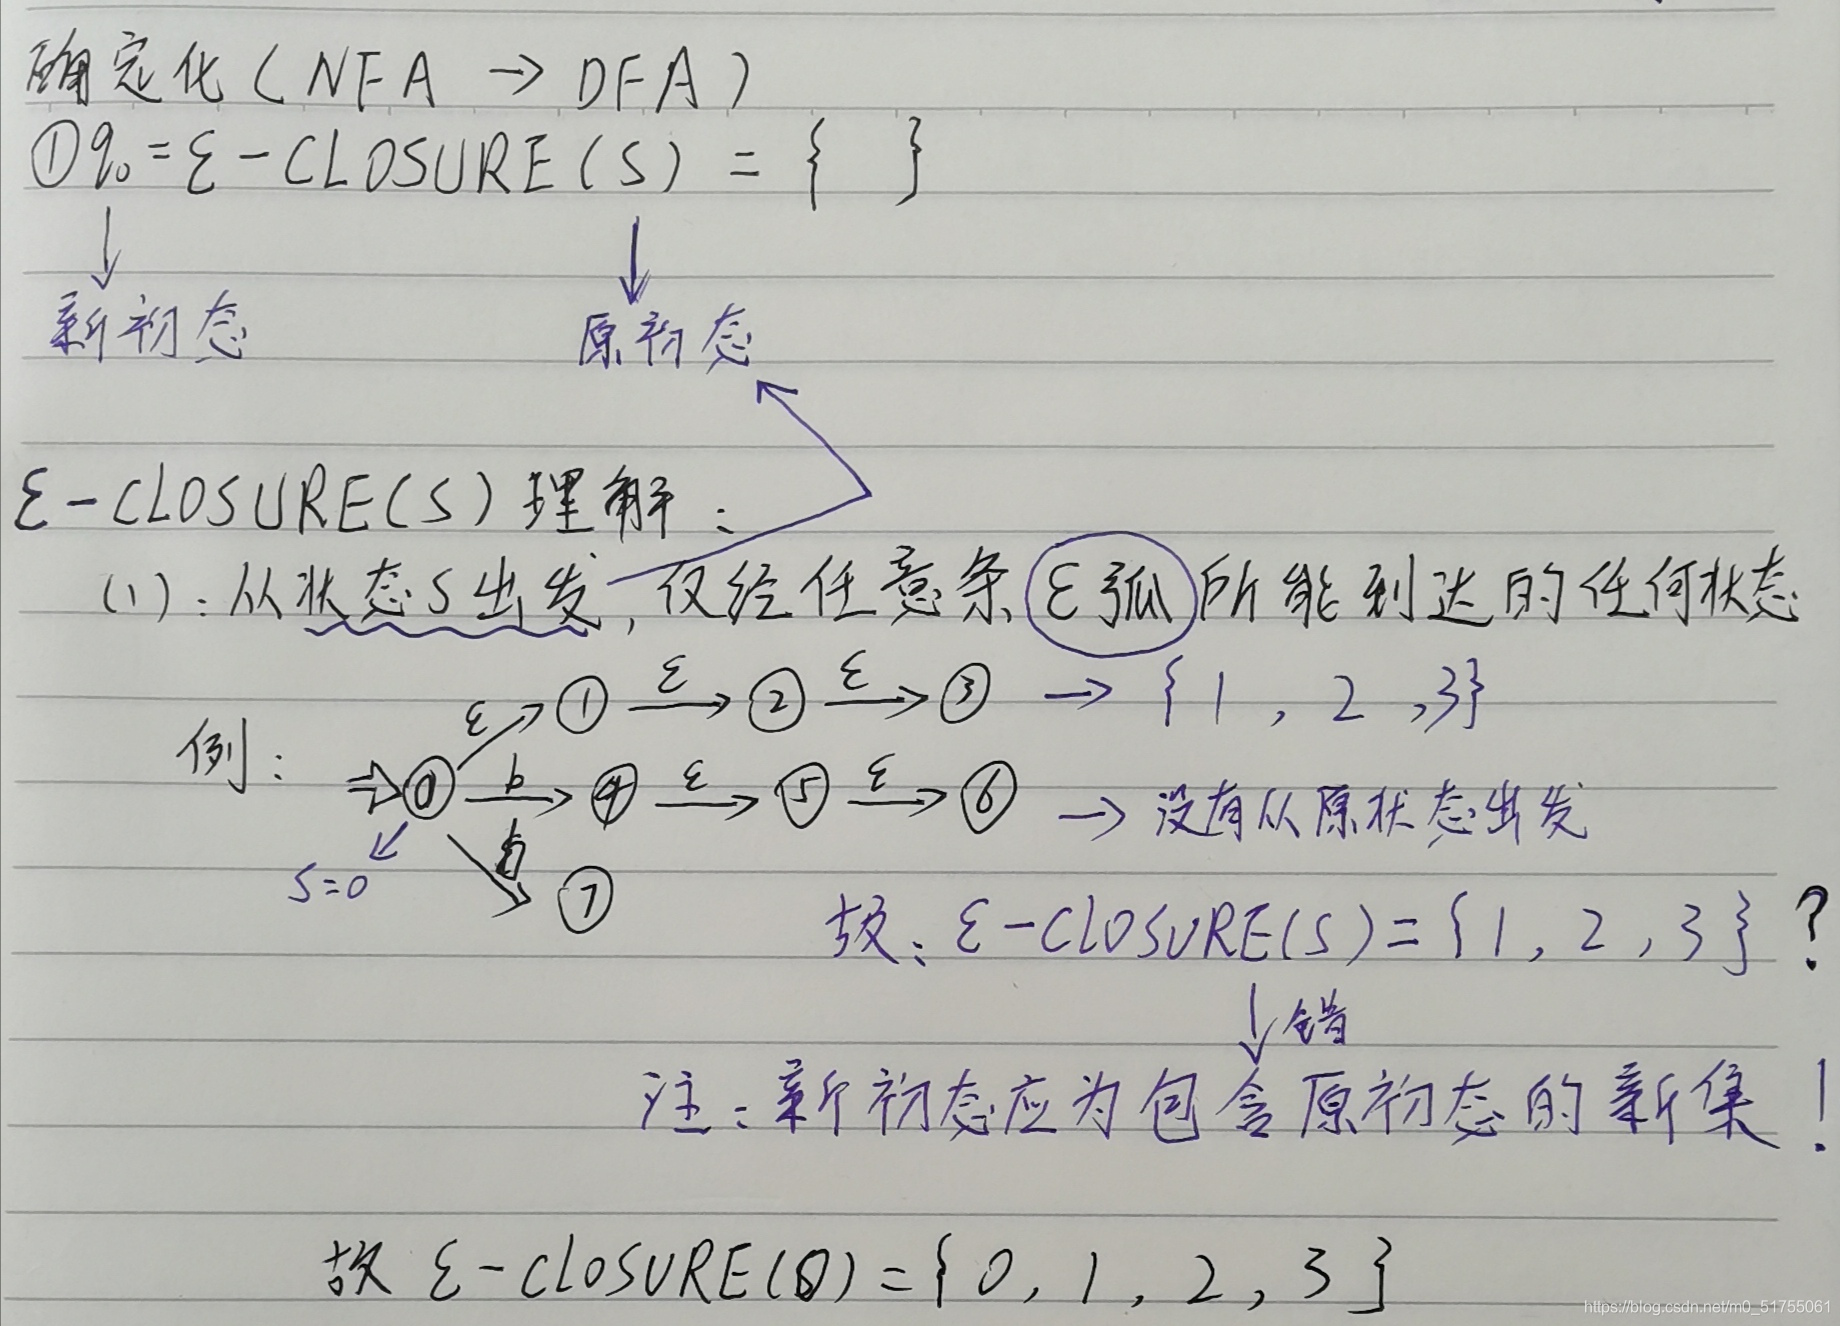 确定化(NFA → DFA)
①q₀=ε-CLOSURE(S) = { }
新初态 原初态
ε-CLOSURE(S)理解:
(1):从状态S出发,仅经任意条ε弧所能到达的任何状态
ε ① ε ② ε ③ → {1, 2, 3}
例: ⇒ ⓪ b ④ ε ⑤ ε ⑥ → 没有从原状态出发
S=0 ⑦
故:ε-CLOSURE(S)={1, 2, 3}?
错
注:新初态应为包含原初态的新集!
故 ε-CLOSURE(0)={0, 1, 2, 3}
https://blog.csdn.net/m0_51755061